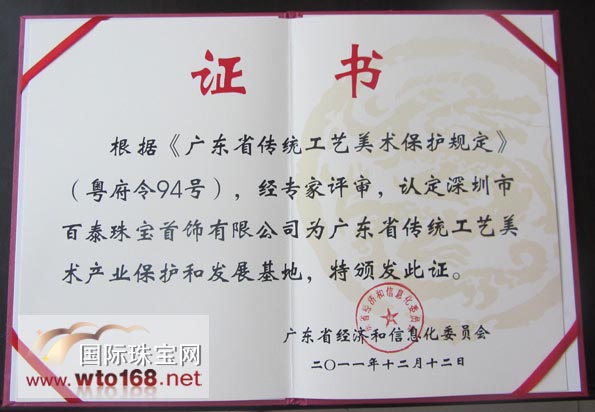 证 书
根据《广东省传统工艺美术保护规定》
（粤府令94号），经专家评审，认定深圳市
百泰珠宝首饰有限公司为广东省传统工艺美
术产业保护和发展基地，特颁发此证。
广东省经济和信息化委员会
广东省经济和信息化委员会
二〇一一年十二月十二日
国际珠宝网
www.wto168.net